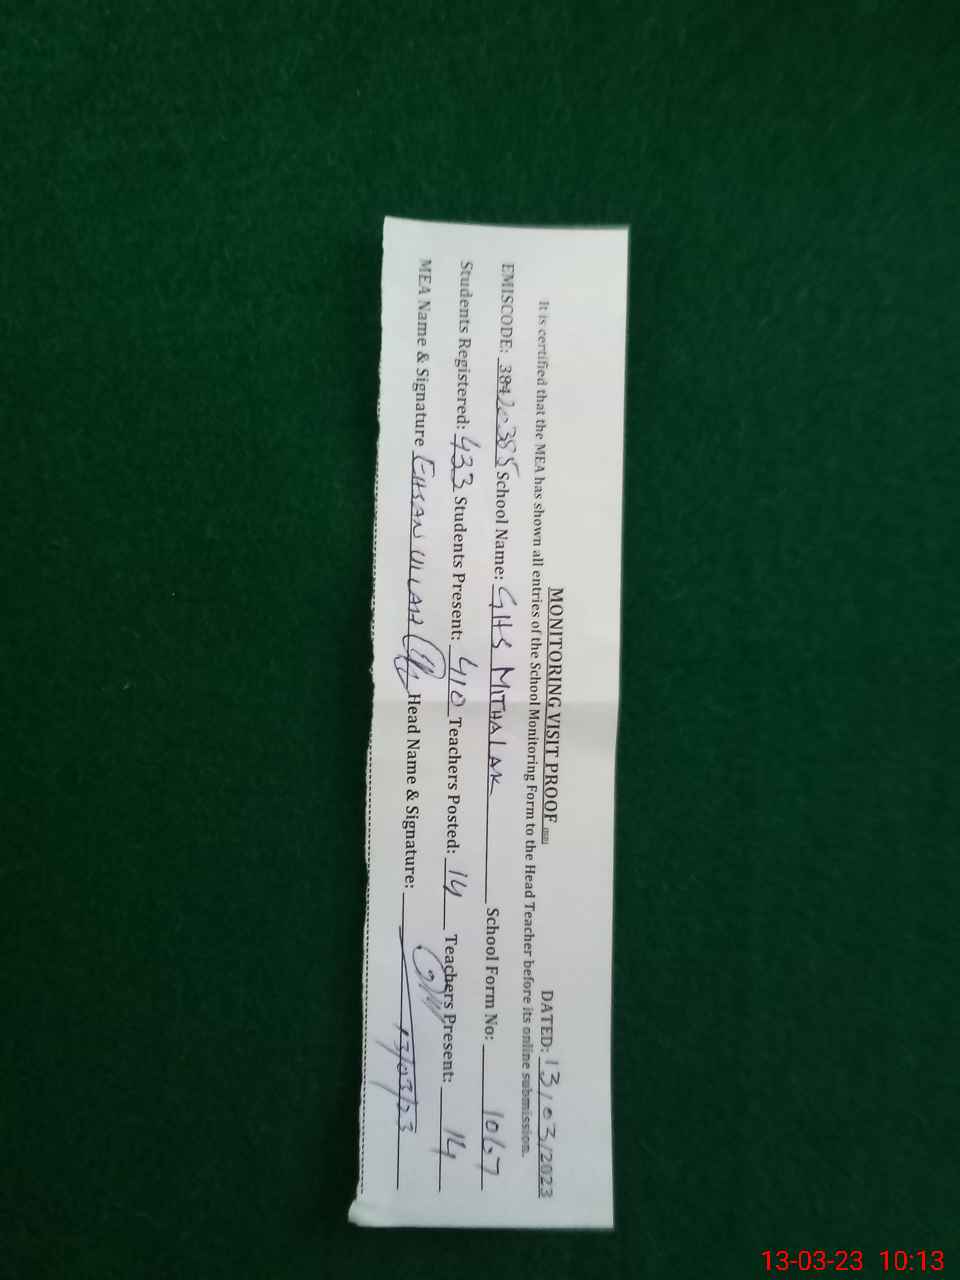 MONITORING VISIT PROOF DATED: 13/03/2023
It is certified that the MEA has shown all entries of the School Monitoring Form to the Head Teacher before its online submission.
EMISCODE: 38420385 School Name: GHS MITHALAK School Form No: 1067
Students Registered: 433 Students Present: 410 Teachers Posted: 14 Teachers Present: 14
MEA Name & Signature EHSAN ULLAH Head Name & Signature: 13/03/23
13-03-23 10:13